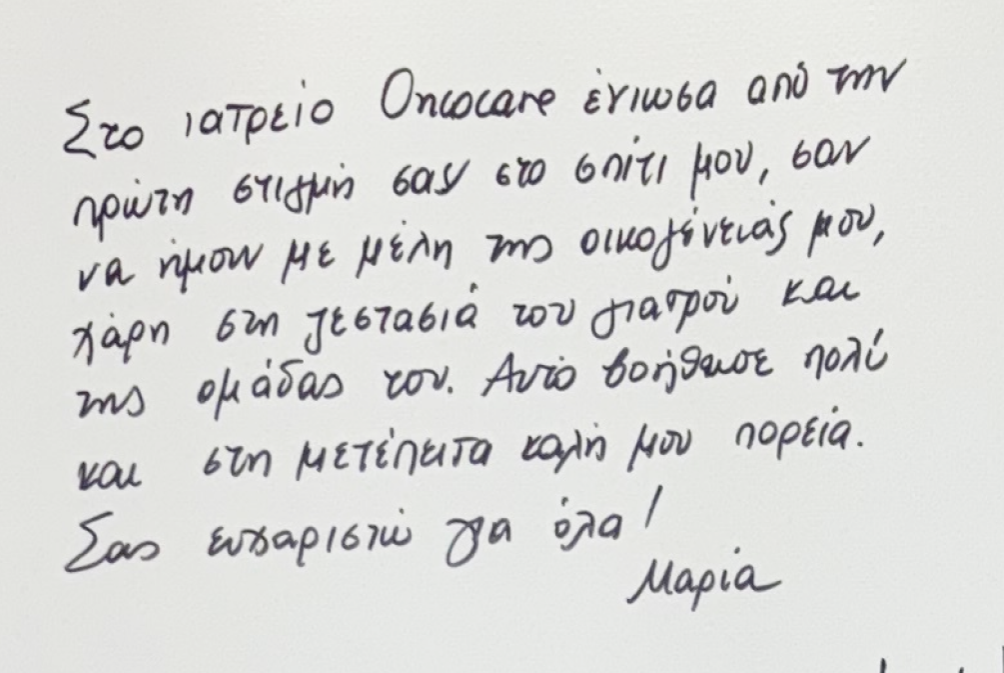 Στο ιατρείο Oncocare ένιωσα από την
πρώτη στιγμή σαν στο σπίτι μου, σαν
να ήμουν με μέλη της οικογένειάς μου,
χάρη στη ζεστασιά του γιατρού και
της ομάδας του. Αυτό βοήθησε πολύ
και στη μετέπειτα καλή μου πορεία.
Σας ευχαριστώ για όλα!
Μαρία